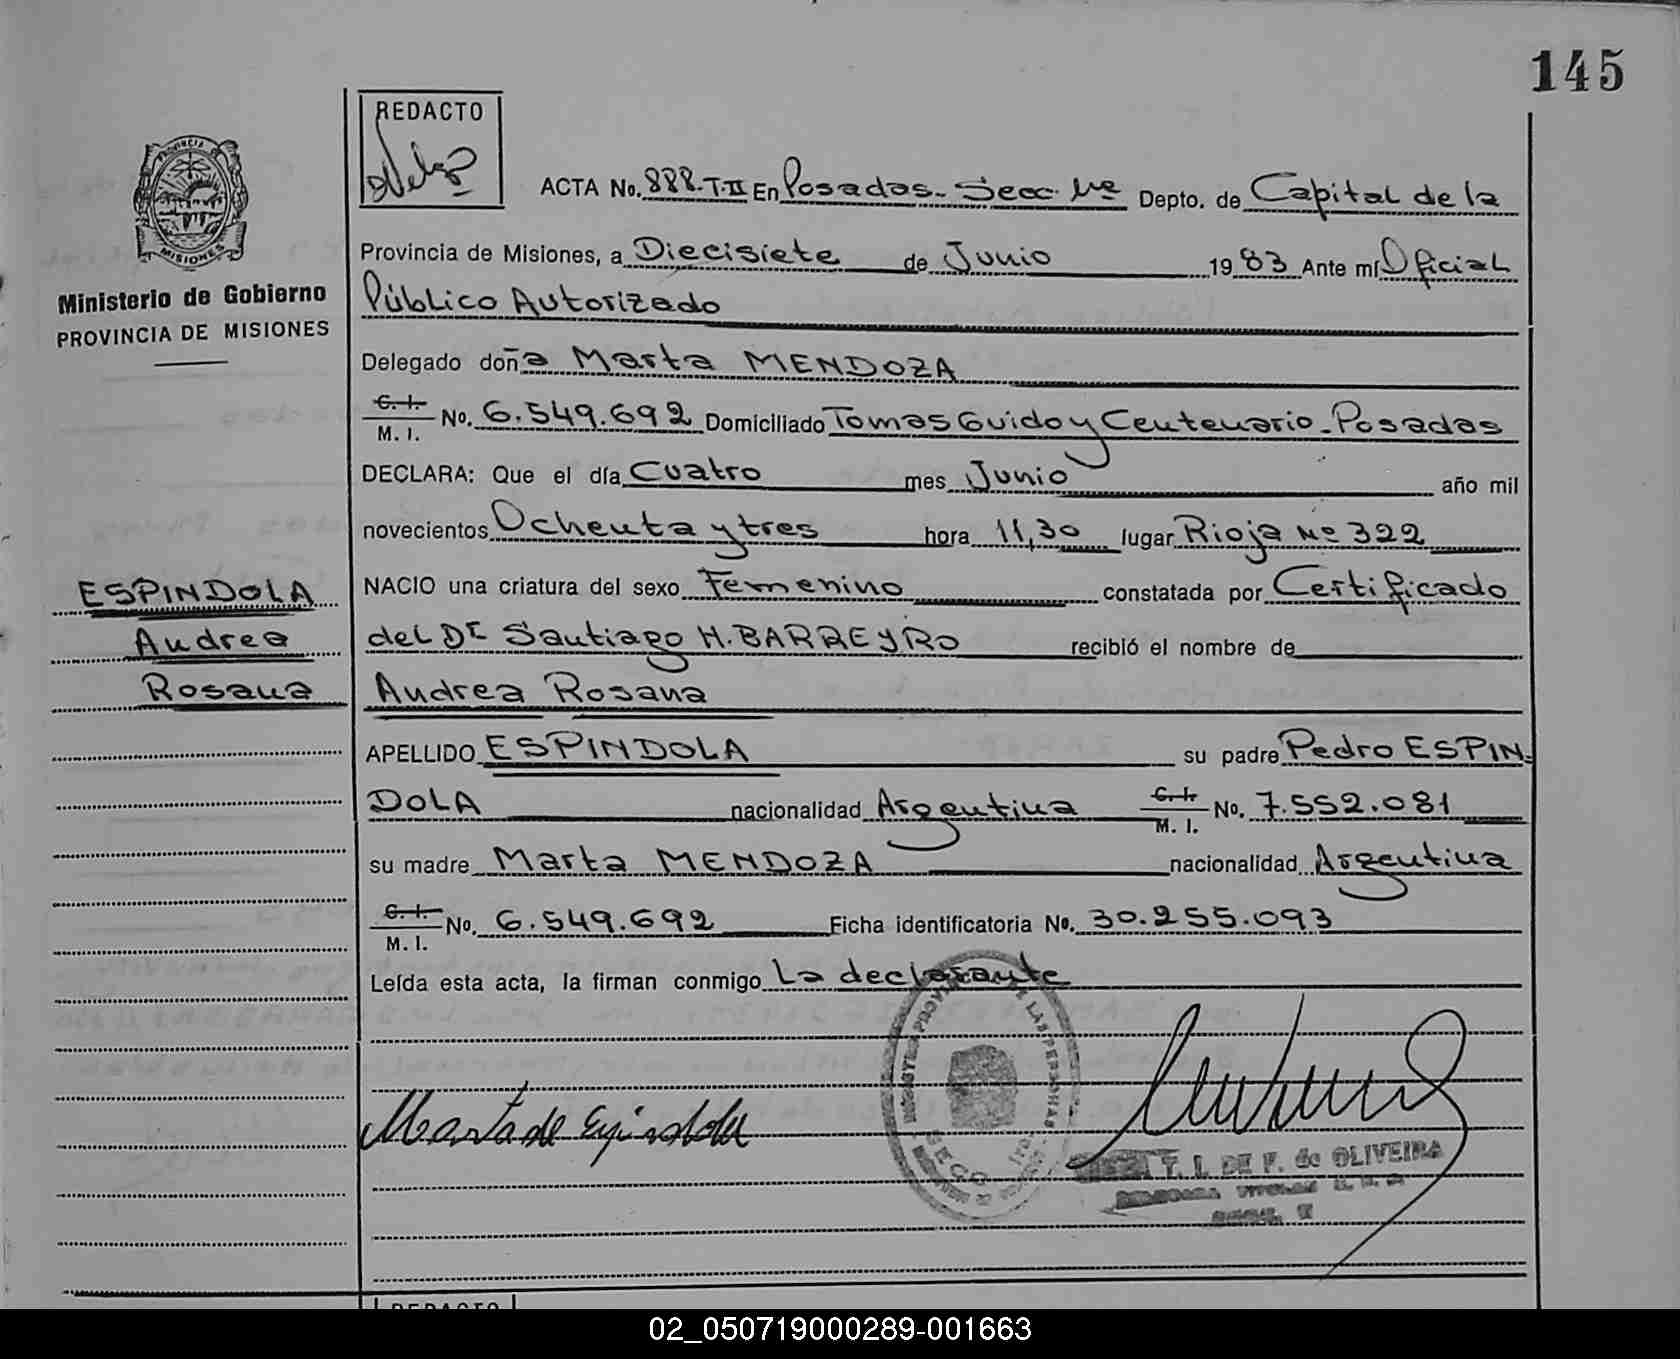 145
REDACTO
PROVINCIA DE
MISIONES
Ministerio de Gobierno
PROVINCIA DE MISIONES
ACTA No. 888-T-II En Posadas- Secc. 1ra Depto. de Capital de la
Provincia de Misiones, a Diecisiete de Junio 1983 Ante mí Oficial
Público Autorizado
Delegado doña Marta MENDOZA
C. I. M. I. No. 6.549.692 Domiciliado Tomas Guido y Centenario - Posadas
DECLARA: Que el día Cuatro mes Junio año mil
novecientos Ochenta y tres hora 11,30 lugar Rioja Nº 322
NACIO una criatura del sexo Femenino constatada por Certificado
del Dr Santiago H. BARREYRO recibió el nombre de
Andrea Rosana
ESPINDOLA
Andrea
Rosana
APELLIDO ESPINDOLA su padre Pedro ESPIN-
DOLA nacionalidad Argentina C. I. M. I. No. 7.552.081
su madre Marta MENDOZA nacionalidad Argentina
C. I. M. I. No. 6.549.692 Ficha identificatoria No. 30.255.093
Leída esta acta, la firman conmigo La declarante
LAS PERSONAS
SECC
Marta de Espindola
T. I. DE F. de OLIVEIRA
TITULAR
REDACTO
02_050719000289-001663